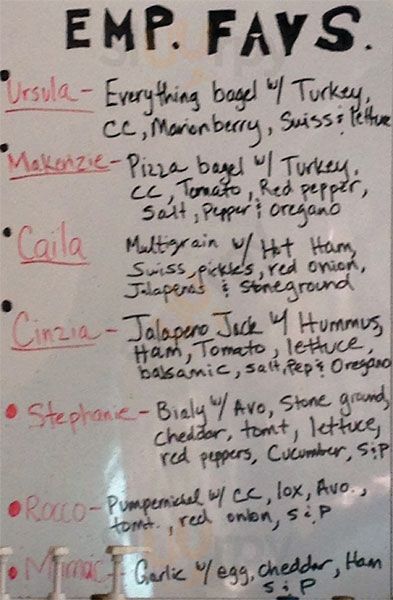 EMP. FAVS.
Ursula - Everything bagel w/ Turkey,
CC, Marionberry, Swiss & lettuce
Makenzie - Pizza bagel w/ Turkey,
CC, Tomato, Red pepper,
Salt, Pepper & Oregano
Caila Multigrain w/ Hot Ham,
Swiss, pickles, red onion,
Jalapenos & Stoneground
Cinzia - Jalapeno Jack w/ Hummus,
Ham, Tomato, lettuce,
balsamic, salt, Pep & Oregano
Stephanie - Bialy w/ Avo, Stone ground,
cheddar, tomt, lettuce,
red peppers, Cucumber, S&P
Rocco - Pumpernickel w/ CC, lox, Avo.,
tomt., red onion, S&P
- Garlic w/ egg, cheddar, Ham
S&P